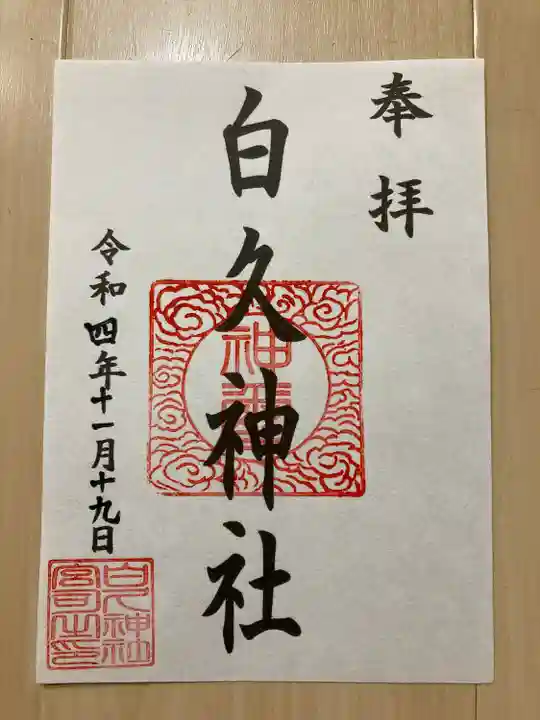 奉拝
白久神社
令和四年十一月十九日
白久神社
宮司之印